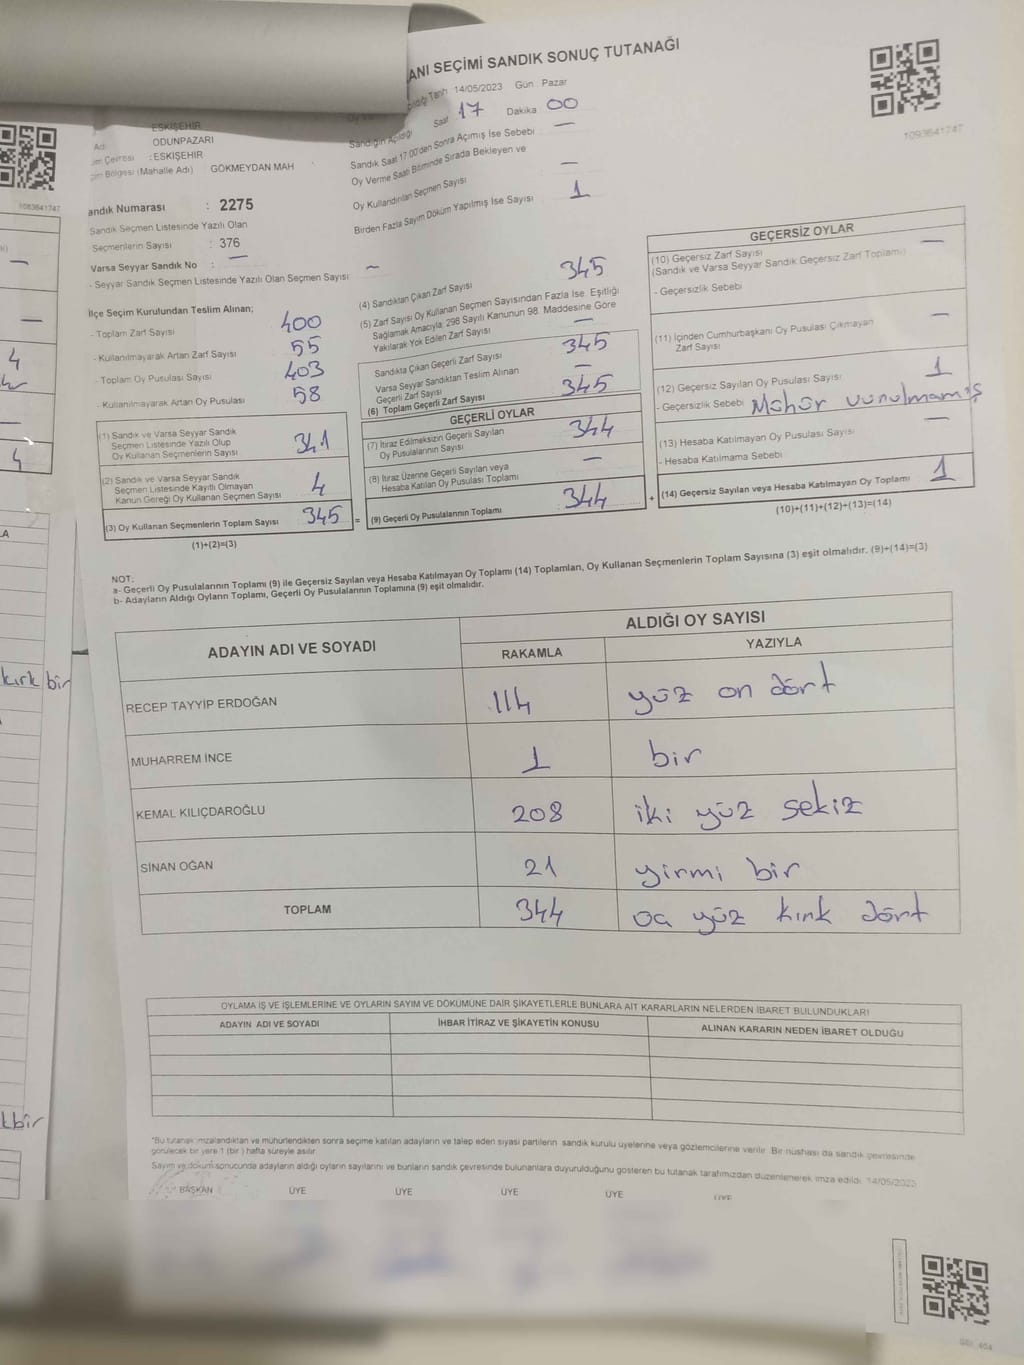 ANI SEÇİMİ SANDIK SONUÇ TUTANAĞI
14/05/2023 Gün Pazar
Saat 17 Dakika 00
ESKİŞEHİR
Adı ODUNPAZARI
Çevresi : ESKİŞEHİR
Bölgesi (Mahalle Adı) GÖKMEYDAN MAH
1093641747
1093641747
Sandığın Açıldığı
Sandık Saat 17.00'den Sonra Açımış İse Sebebi —
Oy Verme Saati Bitiminde Sırada Bekleyen ve
Oy Kullandırılan Seçmen Sayısı —
Birden Fazla Sayım Döküm Yapılmış İse Sayısı 1
andık Numarası : 2275
Sandık Seçmen Listesinde Yazılı Olan
Seçmenlerin Sayısı : 376
Varsa Seyyar Sandık No : —
- Seyyar Sandık Seçmen Listesinde Yazılı Olan Seçmen Sayısı —
İlçe Seçim Kurulundan Teslim Alınan;
- Toplam Zarf Sayısı 400
- Kullanılmayarak Artan Zarf Sayısı 55
- Toplam Oy Pusulası Sayısı 403
- Kullanılmayarak Artan Oy Pusulası 58
(1) Sandık ve Varsa Seyyar Sandık
Seçmen Listesinde Yazılı Olup
Oy Kullanan Seçmenlerin Sayısı 341
(2) Sandık ve Varsa Seyyar Sandık
Seçmen Listesinde Kayıtlı Olmayan
Kanun Gereği Oy Kullanan Seçmen Sayısı 4
(3) Oy Kullanan Seçmenlerin Toplam Sayısı 345 =
(1)+(2)=(3)
(4) Sandıktan Çıkan Zarf Sayısı 345
(5) Zarf Sayısı Oy Kullanan Seçmen Sayısından Fazla İse, Eşitliği
Sağlamak Amacıyla; 298 Sayılı Kanunun 98. Maddesine Göre
Yakılarak Yok Edilen Zarf Sayısı —
Sandıkta Çıkan Geçerli Zarf Sayısı 345
Varsa Seyyar Sandıktan Teslim Alınan
Geçerli Zarf Sayısı —
(6) Toplam Geçerli Zarf Sayısı 345
GEÇERLİ OYLAR
(7) İtiraz Edilmeksizin Geçerli Sayılan
Oy Pusulalarının Sayısı 344
(8) İtiraz Üzerine Geçerli Sayılan veya
Hesaba Katılan Oy Pusulası Toplamı —
(9) Geçerli Oy Pusulalarının Toplamı 344 +
GEÇERSİZ OYLAR
(10) Geçersiz Zarf Sayısı —
(Sandık ve Varsa Seyyar Sandık Geçersiz Zarf Toplamı)
- Geçersizlik Sebebi
(11) İçinden Cumhurbaşkanı Oy Pusulası Çıkmayan
Zarf Sayısı —
(12) Geçersiz Sayılan Oy Pusulası Sayısı 1
- Geçersizlik Sebebi Mühür vurulmamış
(13) Hesaba Katılmayan Oy Pusulası Sayısı —
- Hesaba Katılmama Sebebi
(14) Geçersiz Sayılan veya Hesaba Katılmayan Oy Toplamı 1
(10)+(11)+(12)+(13)=(14)
NOT:
a- Geçerli Oy Pusulalarının Toplamı (9) ile Geçersiz Sayılan veya Hesaba Katılmayan Oy Toplamı (14) Toplamları, Oy Kullanan Seçmenlerin Toplam Sayısına (3) eşit olmalıdır. (9)+(14)=(3)
b- Adayların Aldığı Oyların Toplamı, Geçerli Oy Pusulalarının Toplamına (9) eşit olmalıdır.
ADAYIN ADI VE SOYADI ALDIĞI OY SAYISI
RAKAMLA YAZIYLA
RECEP TAYYİP ERDOĞAN 114 yüz on dört
MUHARREM İNCE 1 bir
KEMAL KILIÇDAROĞLU 208 iki yüz sekiz
SİNAN OĞAN 21 yirmi bir
TOPLAM 344 üç yüz kırk dört
4
4
kırk bir
kbir
OYLAMA İŞ VE İŞLEMLERİNE VE OYLARIN SAYIM VE DÖKÜMÜNE DAİR ŞİKAYETLERLE BUNLARA AİT KARARLARIN NELERDEN İBARET BULUNDUKLARI
ADAYIN ADI VE SOYADI İHBAR İTİRAZ VE ŞİKAYETİN KONUSU ALINAN KARARIN NEDEN İBARET OLDUĞU
*Bu tutanak imzalandıktan ve mühürlendikten sonra seçime katılan adayların ve talep eden siyasi partilerin sandık kurulu üyelerine veya gözlemcilerine verilir. Bir nüshası da sandık çevresinde
görülecek bir yere 1 (bir) hafta süreyle asılır.
Sayım ve döküm sonucunda adayların aldığı oyların sayılarını ve bunların sandık çevresinde bulunanlara duyurulduğunu gösteren bu tutanak tarafımızdan düzenlenerek imza edildi. 14/05/2023
BAŞKAN ÜYE ÜYE ÜYE ÜYE ÜYE